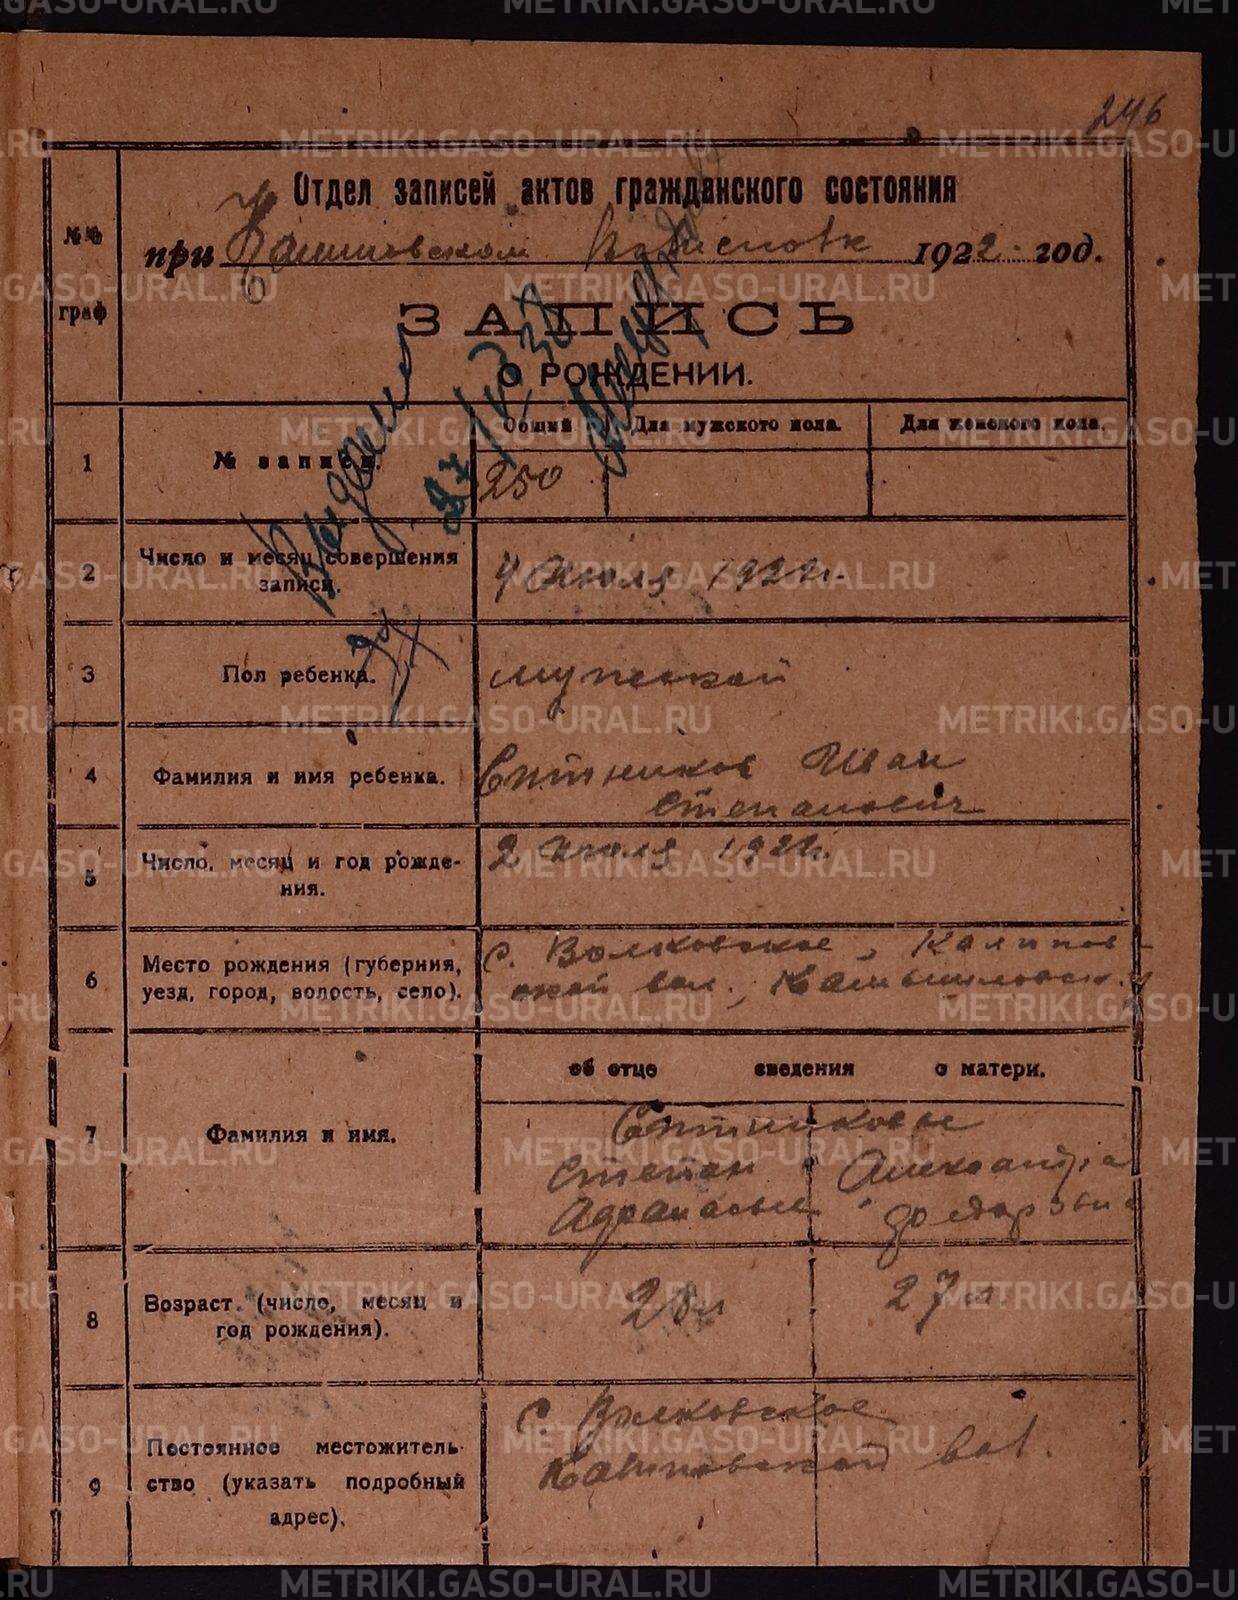 246
Отдел записей актов гражданского состояния
№№
при Калиновском Волисполк 1922 год.
граф
ЗАПИСЬ
О РОЖДЕНИИ.
Выдан
1 № записи. Общий Для мужского пола. Для женского пола.
250
2 Число и месяц совершения записи. 4 Июля 1922 г.
3 Пол ребенка. мужской
4 Фамилия и имя ребенка. Ситников Иван
Степанович
5 Число, месяц и год рожде-
ния. 2 Июля 1922 г.
6 Место рождения (губерния,
уезд, город, волость, село). с. Волковское, Калинов-
ской вол., Камышловск. у
об отце сведения о матери.
7 Фамилия и имя. Ситниковы
Степан Александра
8 Возраст (число, месяц и
год рождения). 28 л 27 л.
9 Постоянное местожитель-
ство (указать подробный
адрес). с. Волковское
Калиновской вол.
METRIKI.GASO-URAL.RU